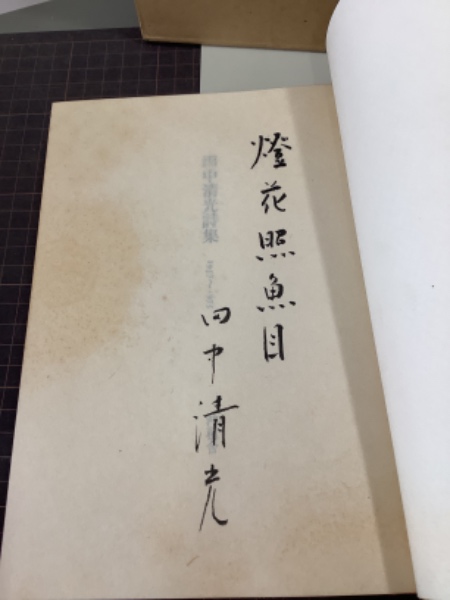 燈花照魚目
田中清光
田中清光詩集